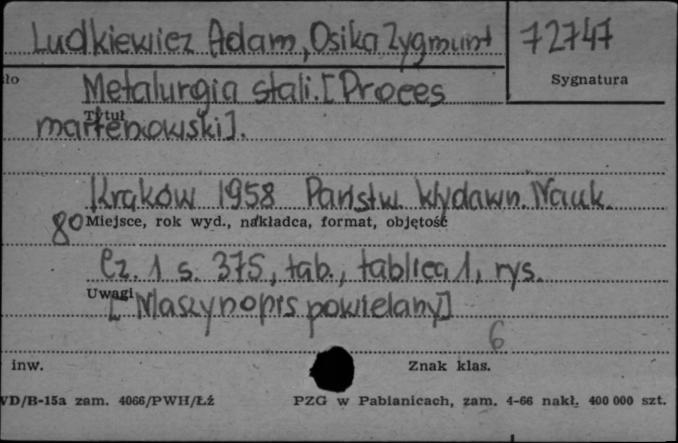 Ludkiewicz Adam, Osika Zygmunt 72747
ło Sygnatura
Metalurgia stali. [Proces
Tytuł
martenowski].
Kraków 1958 Państw. Wydawn. Nauk.
80 Miejsce, rok wyd., nakładca, format, objętość
Cz. 1 s. 375, tab., tablica 1, rys.
Uwagi
[Maszynopis powielany]
6
inw. Znak klas.
VD/B-15a zam. 4066/PWH/Łż PZG w Pabianicach, zam. 4-66 nakł. 400 000 szt.